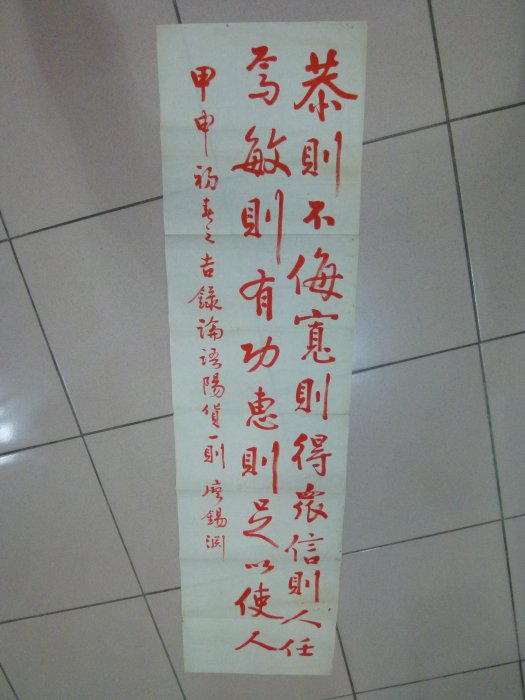 恭則不侮寬則得衆信則人任
焉敏則有功惠則足以使人
甲申初春之吉錄論語陽貨一則 廖錫淵